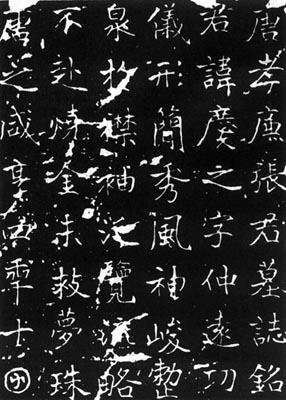 唐孝廉張君墓誌銘
君諱慶之字仲遠
儀形簡秀風神峻整
泉抄襟袖泛覽墳略
不赴燒金未救夢珠
唐之咸亨四年